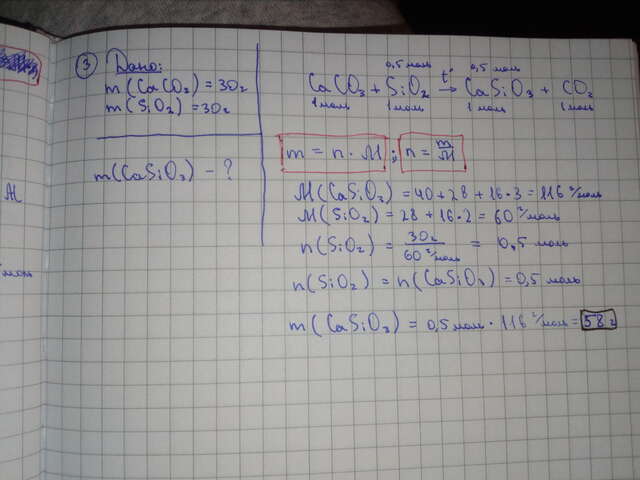 ③ Дано:
m(CaCO₂) = 30г
m(SiO₂) = 30г
m(CaSiO₃) - ?
0,5 моль 0,5 моль
CaCO₃ + SiO₂ t° → CaSiO₃ + CO₂
1 моль 1 моль 1 моль 1 моль
m = n · M ; n = m/M
M(CaSiO₃) = 40 + 28 + 16·3 = 116 г/моль
M(SiO₂) = 28 + 16·2 = 60 г/моль
n(SiO₂) = 30г / 60 г/моль = 0,5 моль
n(SiO₂) = n(CaSiO₃) = 0,5 моль
m(CaSiO₃) = 0,5 моль · 116 г/моль = 58 г
M